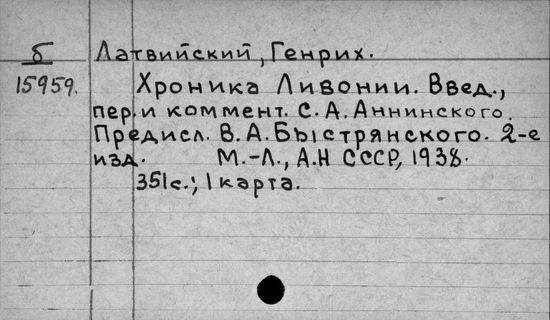 б Латвийский, Генрих.
15959. Хроника Ливонии. Введ.,
пер. и коммент. С. А. Аннинского.
Предисл. В. А. Быстрянского. 2-е
изд. М.-Л., А.Н СССР, 1938.
351с.; 1 карта.